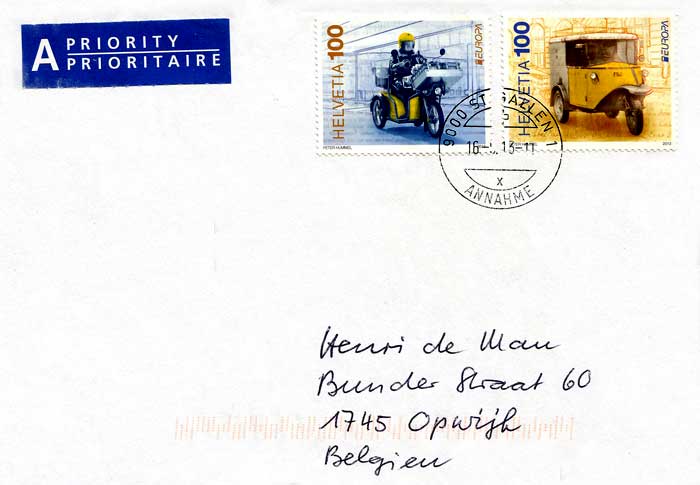 A PRIORITY
PRIORITAIRE
HELVETIA 100
EUROPA
PETER HUMMEL
HELVETIA 100
EUROPA
2013
9000 ST. GALLEN 1
13-11
x
ANNAHME
Henri de Man
Bunder Straat 60
1745 Opwijk
Belgien